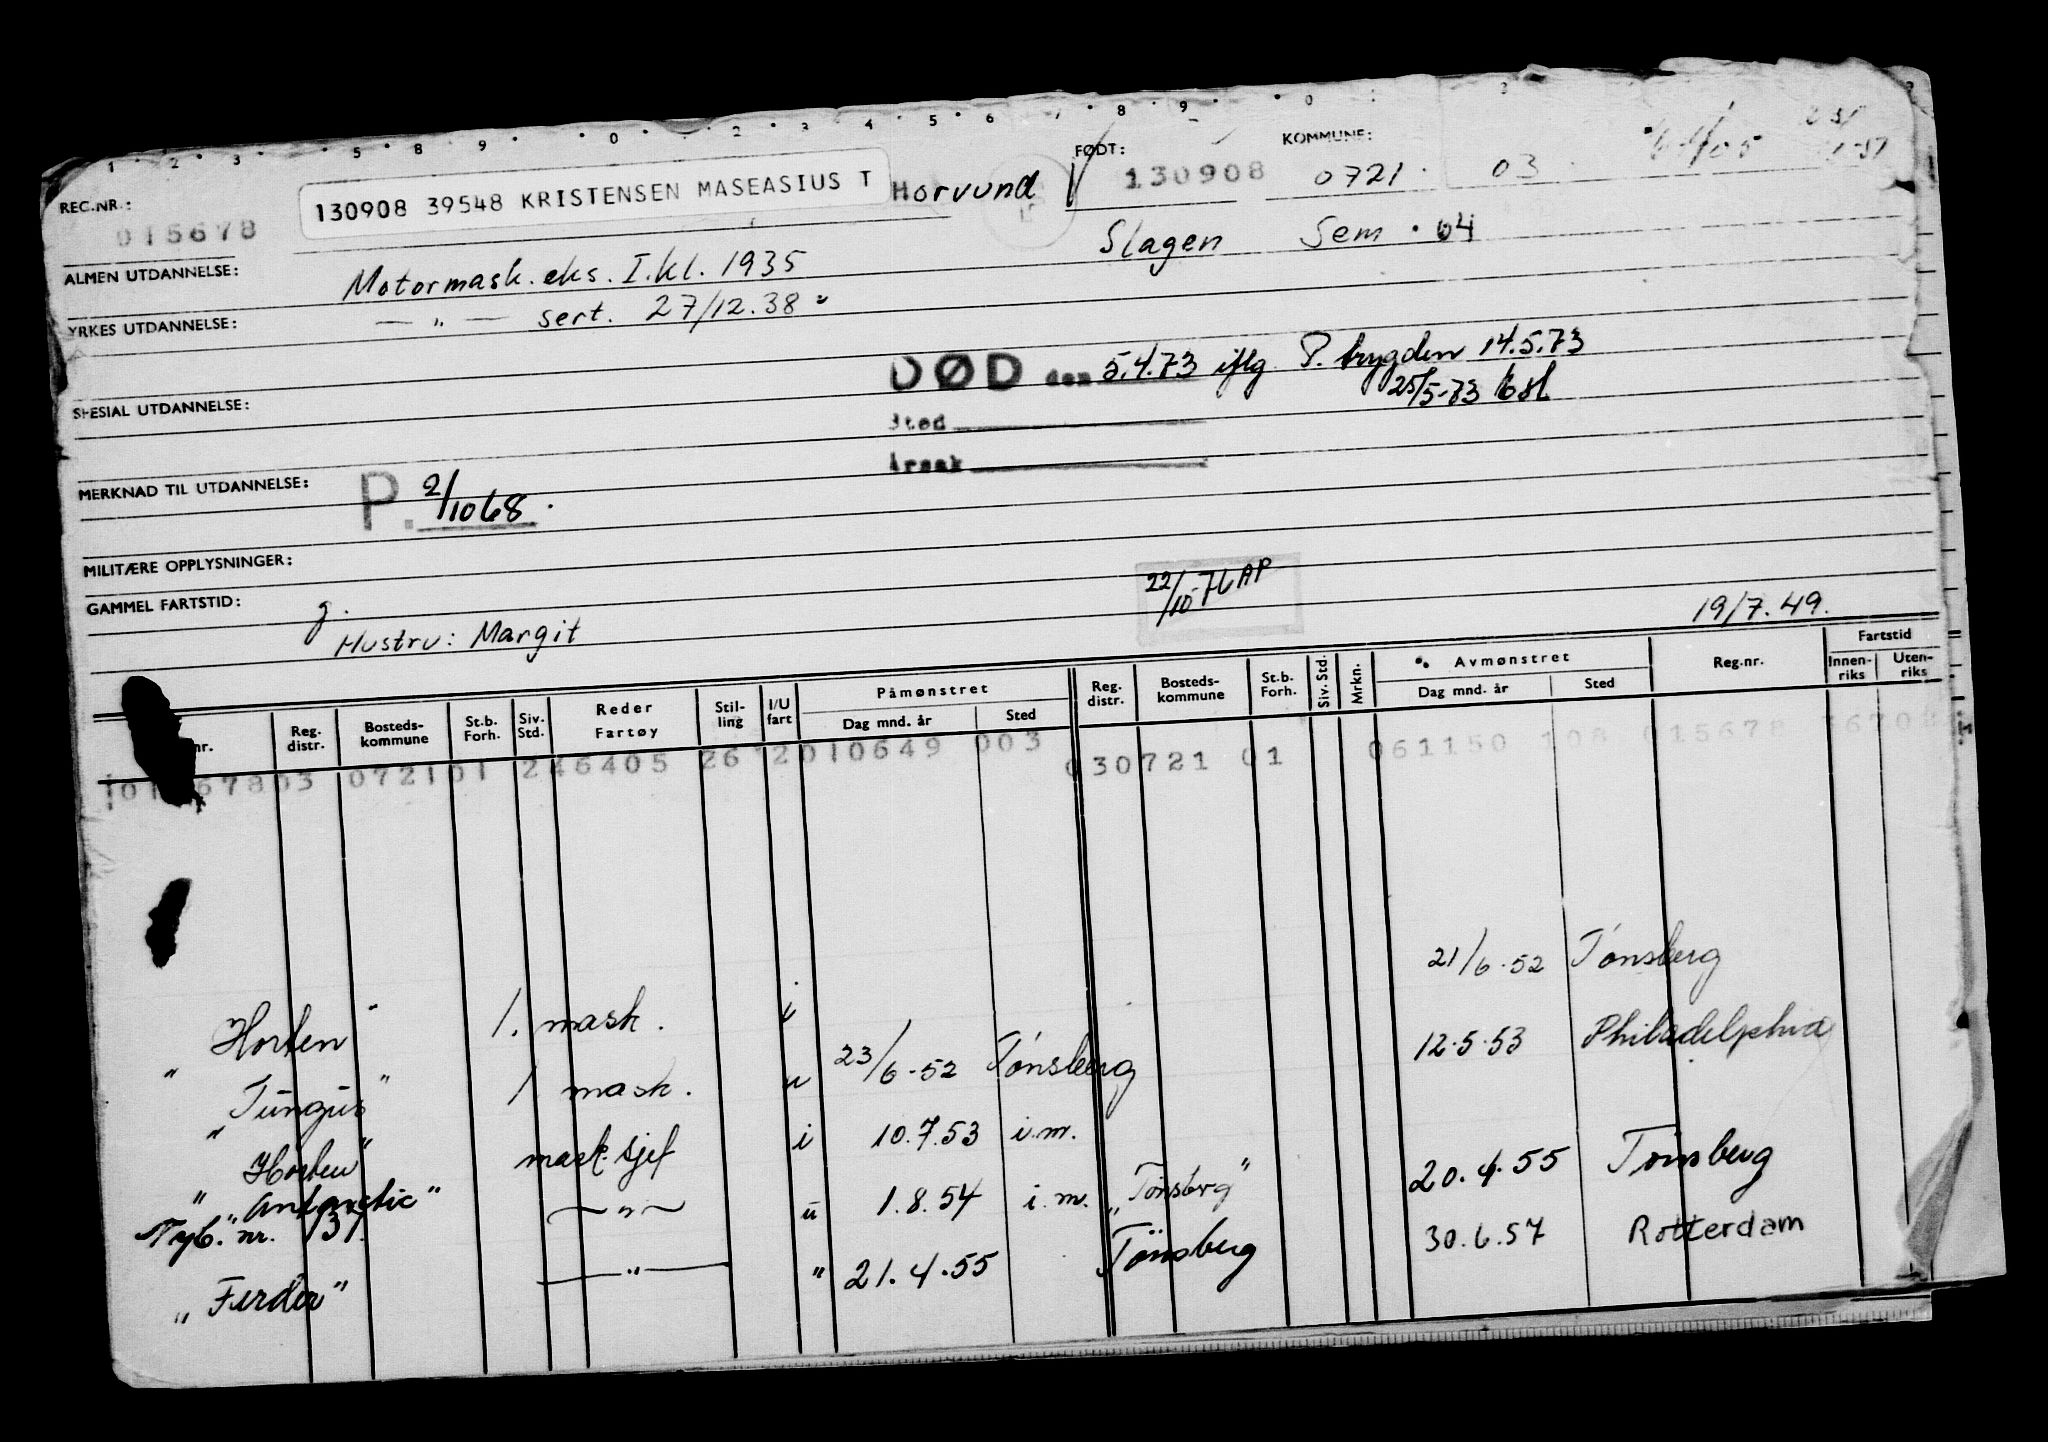 1 2 3 5 8 9 0 2 3 4 5 6 7 8 9 0
REG.NR.: 015678
130908 39548 KRISTENSEN MASEASIUS T Horvund
FØDT: 130908
KOMMUNE: 0721 03
Slagen Sem . 04
ALMEN UTDANNELSE: Motormask. eks. I. kl. 1935
YRKES UTDANNELSE: — " — sert. 27/12.38
DØD den 5.4.73 iflg. P. trygden 14.5.73
25/5-73
Sted
SPESIAL UTDANNELSE:
Årsak
MERKNAD TIL UTDANNELSE: P. 2/1068.
MILITÆRE OPPLYSNINGER:
22/10-71 AP
GAMMEL FARTSTID: g.
19/7.49.
Hustru: Margit
nr. Reg. distr. Bosteds-kommune St.b. Forh. Siv. Std. Reder Fartøy Stil-ling I/U fart Påmønstret Dag mnd. år Sted Reg. distr. Bosteds-kommune St.b. Forh. Siv. Std. Mrkn. Avmønstret Dag mnd. år Sted Reg.nr. Fartstid Innen-riks Uten-riks
67803 072101 246405 26 2010649 003 030721 01 061150 108 015678
21/6.52 Tønsberg
" Horten " 1. mask. i
23/6-52 Tønsberg 12.5.53 Philadelphia
" Tungus " 1 mask. u
" Horten " mask. sjef i 10.7.53 i.m.
" Antarctic " — " — u 1.8.54 i.m. "Tønsberg" 20.4.55 Tønsberg
nr. 131.
" Ferder " — " — " 21.4.55 Tønsberg 30.6.57 Rotterdam